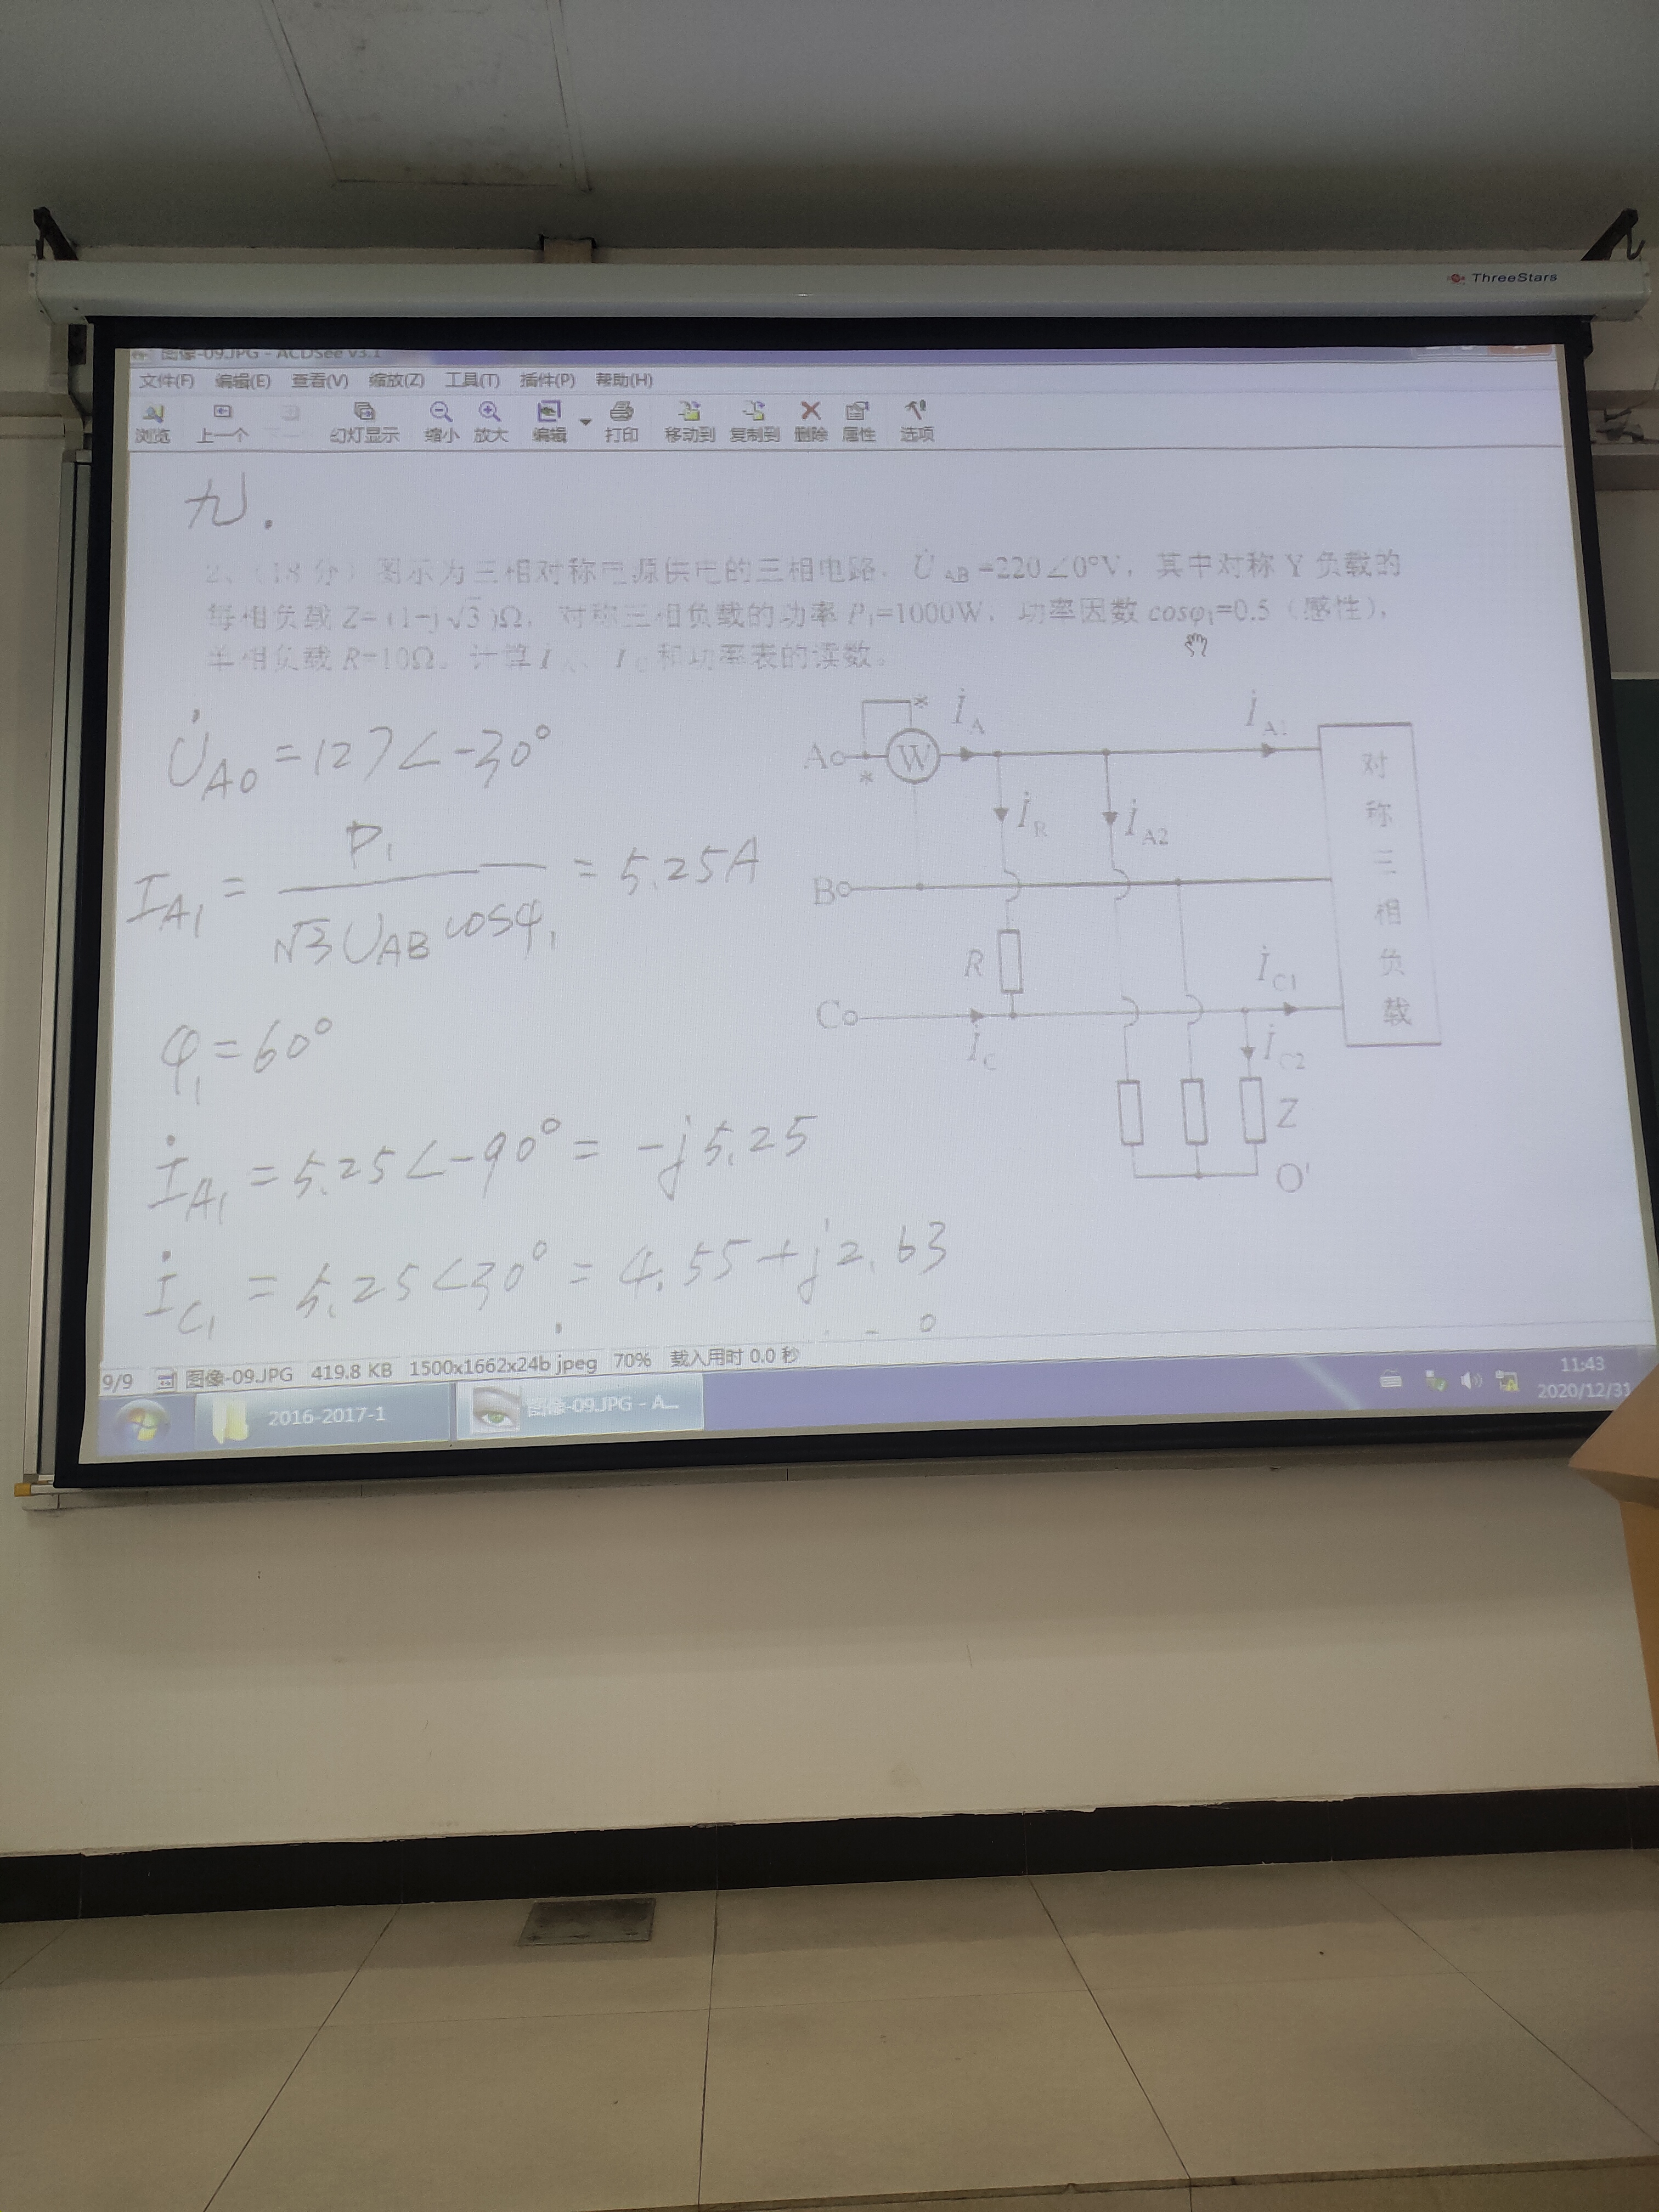 ThreeStars
图像-09.JPG - ACDSee v3.1
文件(F) 编辑(E) 查看(V) 缩放(Z) 工具(T) 插件(P) 帮助(H)
浏览 上一个 下一个 幻灯显示 缩小 放大 编辑 打印 移动到 复制到 删除 属性 选项
九.
2、（18分）图示为三相对称电源供电的三相电路，U̇AB=220∠0°V，其中对称 Y 负载的
每相负载 Z=(1-j√3)Ω，对称三相负载的功率 P₁=1000W，功率因数 cosφ₁=0.5（感性），
单相负载 R=10Ω。计算 İA、İC 和功率表的读数。
U̇AO = 127∠-30°
IA1 = P₁ / √3 UAB cosφ₁ = 5.25A
φ₁ = 60°
İA1 = 5.25∠-90° = -j5.25
İC1 = 5.25∠30° = 4.55+j2.63
* İA İA1
A W
*
İR İA2
B
R İC1
C
İC İC2
Z
O'
对称三相负载
9/9 图像-09.JPG 419.8 KB 1500x1662x24b jpeg 70% 载入用时 0.0 秒
2016-2017-1 图像-09.JPG - A... 11:43
2020/12/31